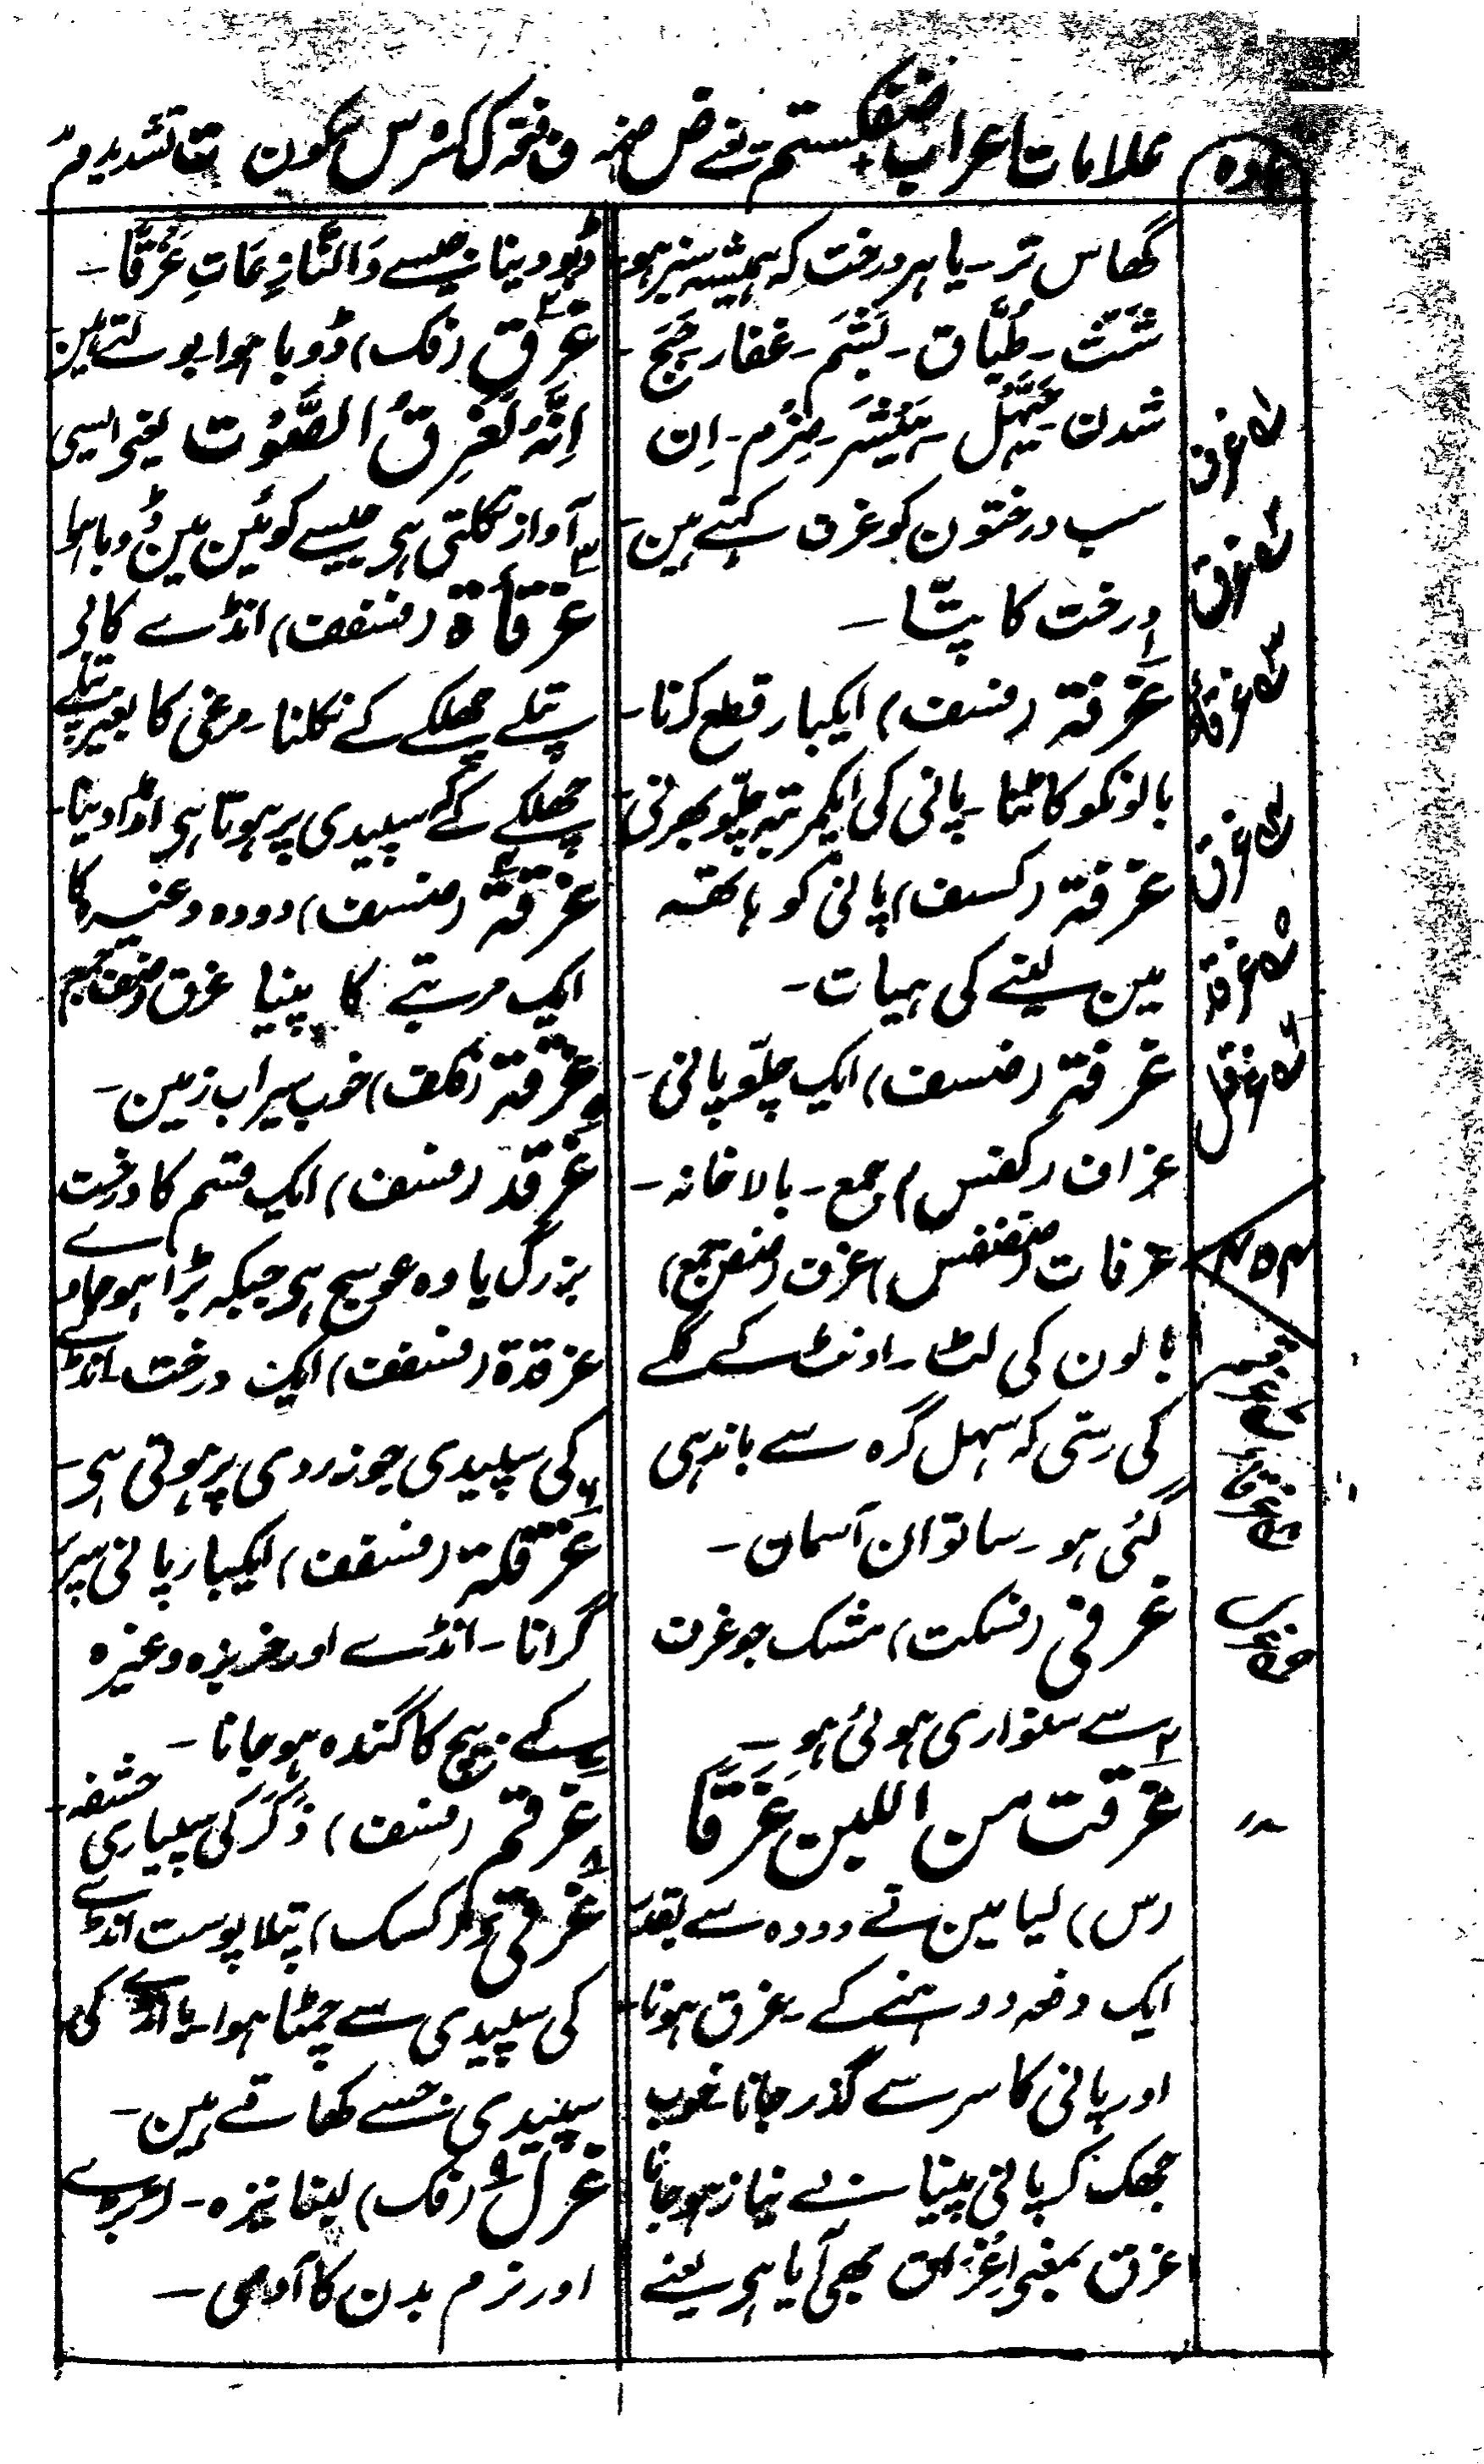 مادہ
علامات اعراب ض ضمہ ف فتحہ ک کسرہ س سکون ت تشدید
گھاس تر۔ یا ہر درخت کہ ہمیشہ سبز ہو۔
شَثّ۔ طُبَّاق۔ بَشَم۔ غفار۔
شدن۔ ۔ اِن
سب درختون کو غرف کہتے ہین۔
درخت کا پتّا۔
غَرفۃ (فسف) ایکبار قطع کرنا۔
بالونکو کاٹنا۔ پانی کی ایکمرتبہ چلّو بھرنی
غرفۃ (کسف) پانی کو ہاتھہ
مین لینے کی ہیات۔
غرفۃ (ضسف) ایک چلّو پانی۔
غراف (کفس) جمع۔ بالا خانہ۔
غرفات (ضفس) غرف (ضف جمع)
بالون کی لٹ۔ اونٹ کے گلے
کی رسّی کہ سہل گرہ سے باندہی
گئی ہو۔ ساتوان آسمان۔
غرفی (فسکت) مشک جو غرف
سے سنواری ہوئی ہو۔
غرقت من اللبن غَرَقًا
(س) لیا مین نے دودہ سے بقدر
ایک دفعہ دوہنے کے۔ غرق ہونا۔
اور پانی کا سر سے گذر جانا خوب
جھک کر پانی پینا بے نیاز ہو جانا
غرق بمعنی اِغْرَاق بھی آیا ہی یعنے
ڈبو دینا جیسے وَالنَّازِعَاتِ غَرْقًا۔
غَرِق (فک) ڈوبا ہوا بولتے ہین
اِنَّہُ لَغَرِقُ الصَّوْت یعنی ایسی
آواز نکلتی ہی جیسے کوئین مین ڈوبا ہوا
غرقأۃ (فسفف) انڈے کا بے
پتلے چھلکے کے نکلنا۔ مرغی کا بغیر پتلے
چھلکے کے سپیدی پر ہوتا ہی انڈا دینا۔
غرقۃ (ضسف) دودہ وغیرہ کا
ایک مرتبے کا پینا غرق (ضف جمع)
غرقۃ (فکف) خوب سیراب زمین۔
غَرقد (فسف) ایک قسم کا درخت
بزرگ یا وہ عوسج ہی جبکہ بڑا ہو جاوے
غرقدۃ (فسفف) ایک درخت۔ انڈے
کی سپیدی جو زردی پر ہوتی ہی۔
غرقلۃ (فسفف) ایکبار پانی سر پر
گرانا۔ انڈے اور خربزہ وغیرہ
کے بیچ کا گندہ ہو جانا۔
غرقم (فسف) ذَکَر کی سپیاری حشفہ۔
غرقئ (کسک) پتلا پوست انڈے
کی سپیدی سے چمٹا ہوا۔ یا انڈے کی
سپیدی جسے کھاتے ہین۔
غَرِل (فک) لنبا نیزہ۔
اور نرم بدن کا آدمی۔